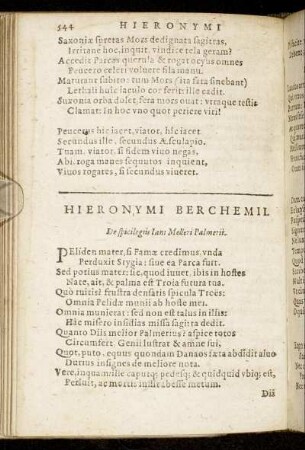 544 HIERONYMI
Saxoniæ spretas Mors dedignata sagittas,
Irritane hoc, inquit, vindice tela geram?
Accedit Parcas querula & rogat ocyus omnes
Peucero celeri voluere fila manu.
Maturant subito: tum Mors (ita fata sinebant)
Lethali hunc iaculo cor ferit: ille cadit.
Saxonia orba dolet, sera mors ouat: vtraque testis
Clamat: In hoc vno quot periere viri!
Peucerus hic iacet, viator, hic iacet
Secundus ille, secundus Æsculapio.
Tuam, viator, si fidem viuo negas,
Abi, roga manes sequutos inquient,
Viuos rogares, si secundus viueret.
HIERONYMI BERCHEMII.
De spicilegiis Iani Melleri Palmerii.
PEliden mater, si Famæ credimus, vnda
Perduxit Stygia: siue ea Parca fuit.
Sed potius mater: sic, quod iuuet, ibis in hostes
Nate, ait, & palma est Troia futura tua.
Quo ruitis? frustra densatis spicula Troës:
Omnia Pelidæ menii ab hoste mei.
Omnia munierat: sed non est talus in illis:
Hac misero insidias missa sagitta dedit.
Quanto Dii melior Palmerius? aspice totos
Circumfert Genii lustrat & amne sui.
Quot, puto, equus quondam Danaos fæta abdidit aluo
Durius insignes de meliore nota.
Vere, inquam, ille caput, pedes; & quidquid vbiq; est,
Perluit, ac mortis iussit abesse metum.
Dii